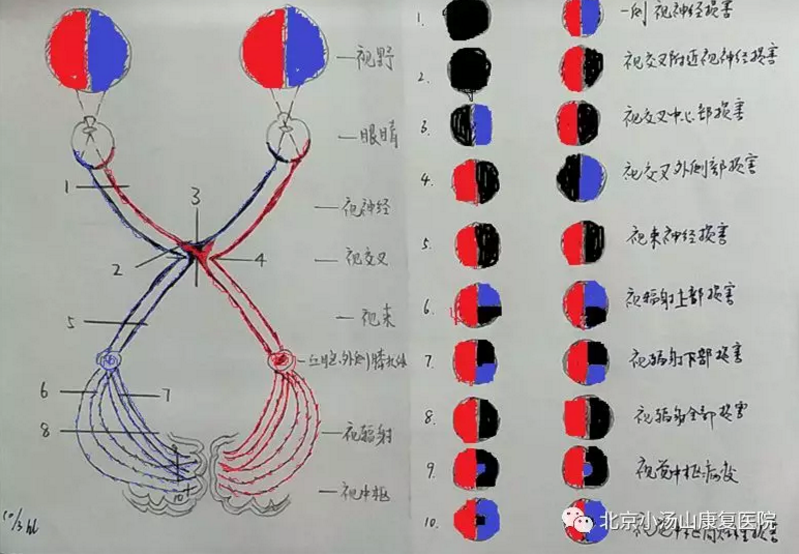 视野
眼睛
视神经
视交叉
视束
丘脑外侧膝状体
视辐射
视中枢
1
2
3
4
5
6
7
8
9
10
1. 一侧视神经损害
2. 视交叉附近视神经损害
3. 视交叉中心部损害
4. 视交叉外侧部损害
5. 视束神经损害
6. 视辐射上部损害
7. 视辐射下部损害
8. 视辐射全部损害
9. 视觉中枢病变
10.
北京小汤山康复医院